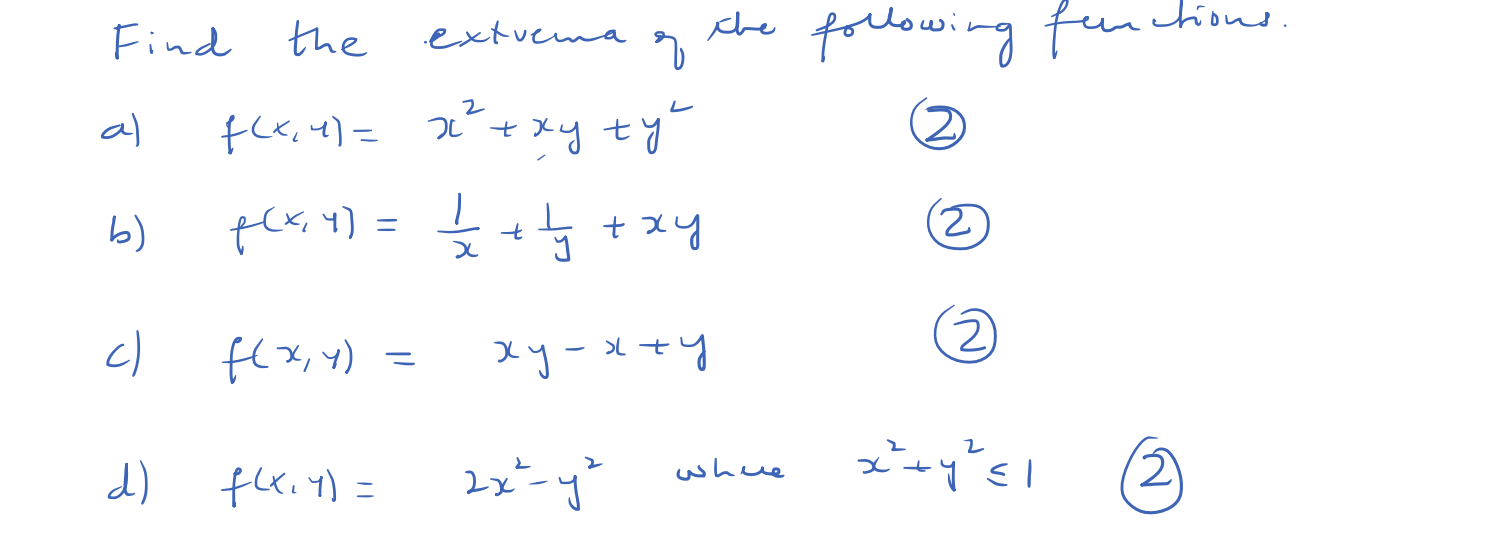 Find the extrema of the following functions.
a) f(x,y) = x² + xy + y² ②
b) f(x,y) = 1/x + 1/y + xy ②
c) f(x,y) = xy - x + y ②
d) f(x,y) = 2x² - y² where x² + y² ≤ 1 ②